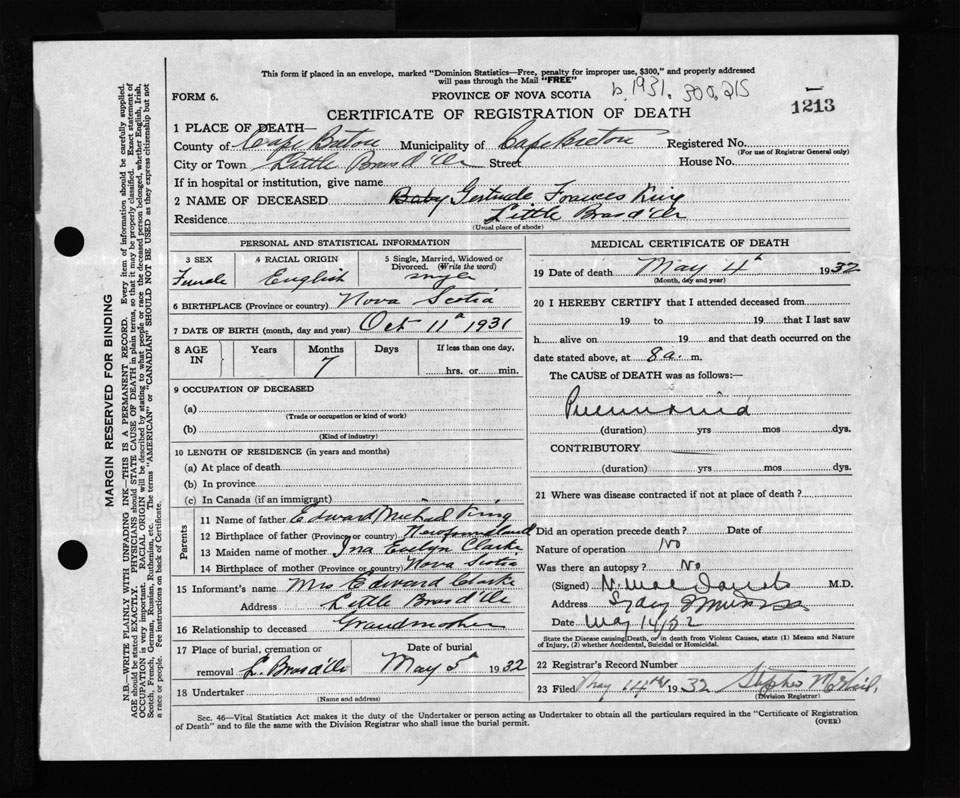 This form if placed in an envelope, marked "Dominion Statistics—Free, penalty for improper use, $300," and properly addressed
will pass through the Mail "FREE"
FORM 6.
PROVINCE OF NOVA SCOTIA
b. 1931. 300,215
1213
CERTIFICATE OF REGISTRATION OF DEATH
1 PLACE OF DEATH—
County of Cape Breton Municipality of Cape Breton Registered No.
(For use of Registrar General only)
City or Town Little Bras d'Or Street House No.
If in hospital or institution, give name
2 NAME OF DECEASED Baby Gertrude Frances King
Residence Little Bras d'Or
(Usual place of abode)
PERSONAL AND STATISTICAL INFORMATION
3 SEX
Female
4 RACIAL ORIGIN
English
5 Single, Married, Widowed or
Divorced. (Write the word)
single
6 BIRTHPLACE (Province or country) Nova Scotia
7 DATE OF BIRTH (month, day and year) Oct 11th 1931
8 AGE
IN
Years
Months
7
Days
If less than one day,
hrs. or min.
9 OCCUPATION OF DECEASED
(a)
(Trade or occupation or kind of work)
(b)
(Kind of industry)
10 LENGTH OF RESIDENCE (in years and months)
(a) At place of death
(b) In province
(c) In Canada (if an immigrant)
Parents
11 Name of father Edward Michael King
12 Birthplace of father (Province or country) Newfoundland
13 Maiden name of mother Ina Evelyn Clarke
14 Birthplace of mother (Province or country) Nova Scotia
15 Informant's name Mrs Edward Clarke
Address Little Bras d'Or
16 Relationship to deceased Grandmother
17 Place of burial, cremation or
removal L. Bras d'Or
Date of burial
May 5th 1932
18 Undertaker
(Name and address)
MEDICAL CERTIFICATE OF DEATH
19 Date of death May 4th 1932
(Month, day and year)
20 I HEREBY CERTIFY that I attended deceased from
19 to 19 that I last saw
h alive on 19 and that death occurred on the
date stated above, at 8 a. m.
The CAUSE of DEATH was as follows:—
Pneumonia
(duration) yrs mos dys.
CONTRIBUTORY
(duration) yrs mos dys.
21 Where was disease contracted if not at place of death?
Did an operation precede death? Date of
Nature of operation No
Was there an autopsy? No
(Signed) M.D.
Address
Date May 14/32
State the Disease causing Death, or in death from Violent Causes, state (1) Means and Nature
of Injury, (2) whether Accidental, Suicidal or Homicidal.
22 Registrar's Record Number
23 Filed May 14th 1932
(Division Registrar)
Sec. 46—Vital Statistics Act makes it the duty of the Undertaker or person acting as Undertaker to obtain all the particulars required in the "Certificate of Registration
of Death" and to file the same with the Division Registrar who shall issue the burial permit.
(OVER)
MARGIN RESERVED FOR BINDING
N.B.—WRITE PLAINLY WITH UNFADING INK—THIS IS A PERMANENT RECORD. Every item of information should be carefully supplied.
AGE should be stated EXACTLY. PHYSICIANS should STATE CAUSE OF DEATH in plain terms, so that it may be properly classified. Exact statement of
OCCUPATION is very important. RACIAL ORIGIN will be described by stating to what people or race the deceased person belonged, whether English, Irish,
Scotch, French, German, Russian, Ruthenian, etc. The terms "AMERICAN" or "CANADIAN" SHOULD NOT BE USED as they express citizenship but not
a race or people. Fee instructions on back of Certificate.